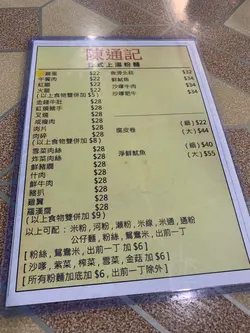 陳通記
港式上湯粉麵
雞蛋 $22
午餐肉 $22
紅腸 $22
大腸 $22
(以上食物雙併加 $5)
金錢牛肚 $28
紅燒豬手 $28
叉燒 $28
咸檸肉 $28
肉片 $28
肉碎 $28
(以上食物雙併加 $8)
雪菜肉絲 $28
炸菜肉絲 $28
鮮豬膶 $28
什肉 $28
鮮牛肉 $28
豬扒 $28
雞翼 $28
羅漢齋 $28
(以上食物雙併加 $9)
魚滑生菜 $32
鮮魷魚 $34
沙嗲牛肉 $34
沙嗲肥牛 $34
腐皮卷
(細) $22
(大) $44
淨鮮魷魚
(細) $40
(大) $55
以上可配 : 米粉 , 河粉 , 瀨粉 , 米線 , 米通 , 通粉
公仔麵 , 粉絲 , 鴛鴦米 , 出前一丁
[ 粉絲 , 鴛鴦米 , 出前一丁 加 $6 ]
[ 沙嗲 , 紫菜 , 榨菜 , 雪菜 , 金菇 加 $6 ]
[ 所有粉麵加底加 $6 , 出前一丁除外 ]